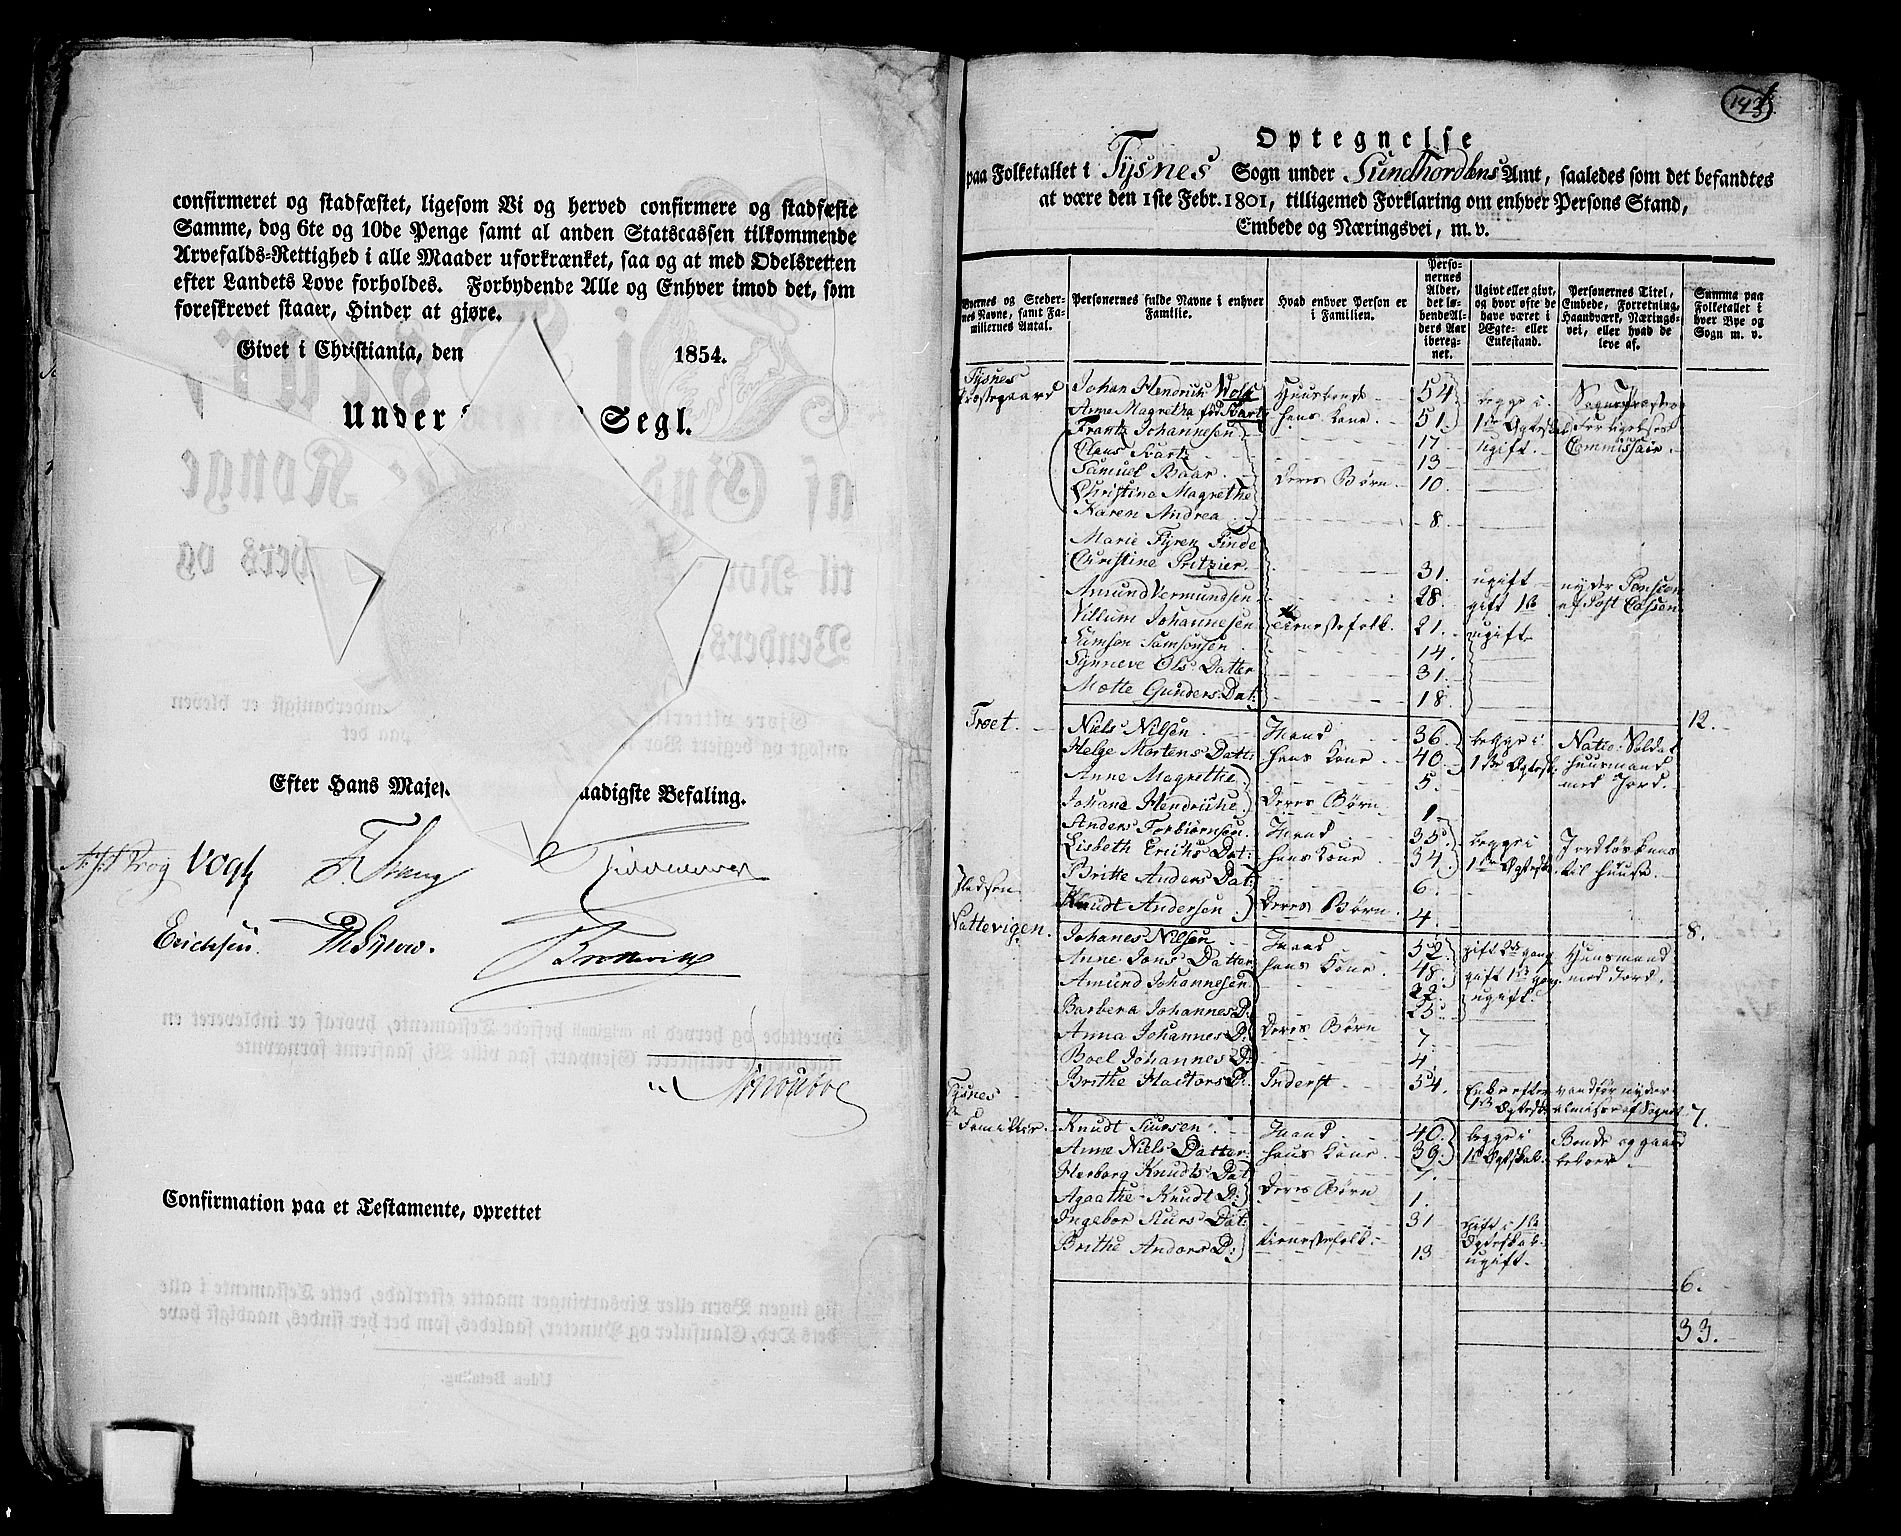 confirmeret og stadfæstet, ligesom Vi og herved confirmere og stadfæste
Samme, dog 6te og 10de Penge samt al anden Statscassen tilkommende
Arvefalds-Rettighed i alle Maader uforkrænket, saa og at med Odelsretten
efter Landets Love forholdes. Forbydende Alle og Enhver imod det, som
foreskrevet staaer, Hinder at gjøre.
Givet i Christiania, den 1854.
Under Segl.
Efter Hans Majes aadigste Befaling.
Vogt
Erichsen.
Confirmation paa et Testamente, oprettet
143
Optegnelse
paa Folketallet i Tysnes Sogn under Sundhordlens Amt, saaledes som det befandtes
at være den 1ste Febr. 1801, tilligemed Forklaring om enhver Persons Stand,
Embede og Næringsvei, m. v.
Byernes og Stedernes Navne, samt Familiernes Antal.
Personernes fulde Navne i enhver Familie.
Hvad enhver Person er i Familien.
Personernes Alder, det løbende Alders Aar iberegnet.
Ugivt eller givt, og hvor ofte de have været i Ægte- eller Enkestand.
Personernes Titel, Embede, Forretning, Haandværk, Næringsvei, eller hvad de leve af.
Summa paa Folketallet i hver Bye og Sogn m. v.
Tysnes
Præstegaard
Johan Hendrik Wolf Huusbonde 54 begge i
Anne Magretha fød hans Kone 51 1ste Ægteskab
Frantz Johannesen 17 ugift
Claus Svartz 13
Samuel Baar deres Børn 10
Christina Magrethe
Karen Andrea 8
Marie Fyren Finde
Christine Pritzier 31 ugift nyder Pension
Amund Vermundsen 28 gift af Post Cassen
Villum Johannesen tienestefolk 21 ugift
Samson Samsonsen 14
Synneve Ols Datter 31
Mette Gunders Dat: 18
12.
Troet. Niels Nilsen Mand 36 begge i Natio. Soldat
Helge Mortens Datt: hans Kone 40 1ste Ægtesk. huusmand
Anne Magrethe 5 med Jord.
Johane Hendriche deres Børn 1
Anders Torbiørnsen Mand 35 begge i
Lisbeth Erichs Dat: hans Kone 34 1ste Ægtesk. til huuse.
Britte Anders Dat: 6
Knudt Andersen deres Børn 4
8.
Nattevigen. Johanes Nilsen Mand 52 gift 2de gang Huusmand
Anne Jons Datter hans Kone 48 gift 1ste gang med Jord.
Amund Johannesen 22 ugift
Barbera Johannes D: 25
Anna Johannes D: deres Børn 7
Boel Johannes D: 4
Brithe Hactors D: Inderst 54 Enke efter vandfør nyder
1ste Ægtesk. almisse af Sognet
7.
Tysnes
Familier. Knudt Siursen Mand 40 begge i Bonde og gaard
Anne Niels Datter hans Kone 39 1ste Ægtskab beboer
Herborg Knudts Dat
Agaathe Knudt D: deres Børn 1.
Ingebor Siurs Dat: 31 gift i 1ste
Brithe Anders D: tienestefolk 13 Ægteskab
ugift.
6.
33.